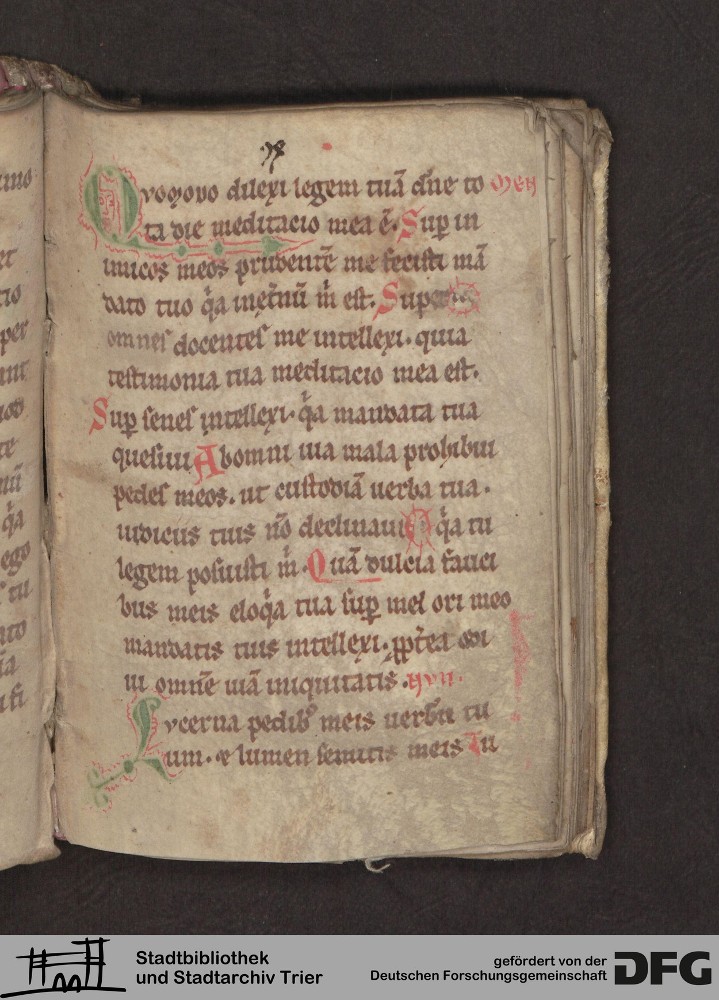 Quomodo dilexi legem tuā dn̄e to MEM
ta die meditacio mea ē. Sup̱ in
imicos meos prudentē me fecisti mā
dato tuo q̓a inet̓nū m̓ est. Super
omnes docentes me intellexi. quia
testimonia tua meditacio mea est.
Sup̱ senes intellexi. q̓a mandata tua
quesiui Ab omni uia mala prohibui
pedes meos. ut custodiā uerba tua.
iudiciis tuis nō declinaui q̓a tu
legem posuisti m̓. Quā dulcia fauci
bus meis eloq̓a tua sup̱ mel ori meo
mandatis tuis intellexi. p̱p̱t̓ea odi
ui omnē uiā iniquitatis. NUN.
Lucerna pedibꝰ meis uerbū tu
um. & lumen semitis meis Iu
Stadtbibliothek
und Stadtarchiv Trier
gefördert von der
Deutschen Forschungsgemeinschaft DFG